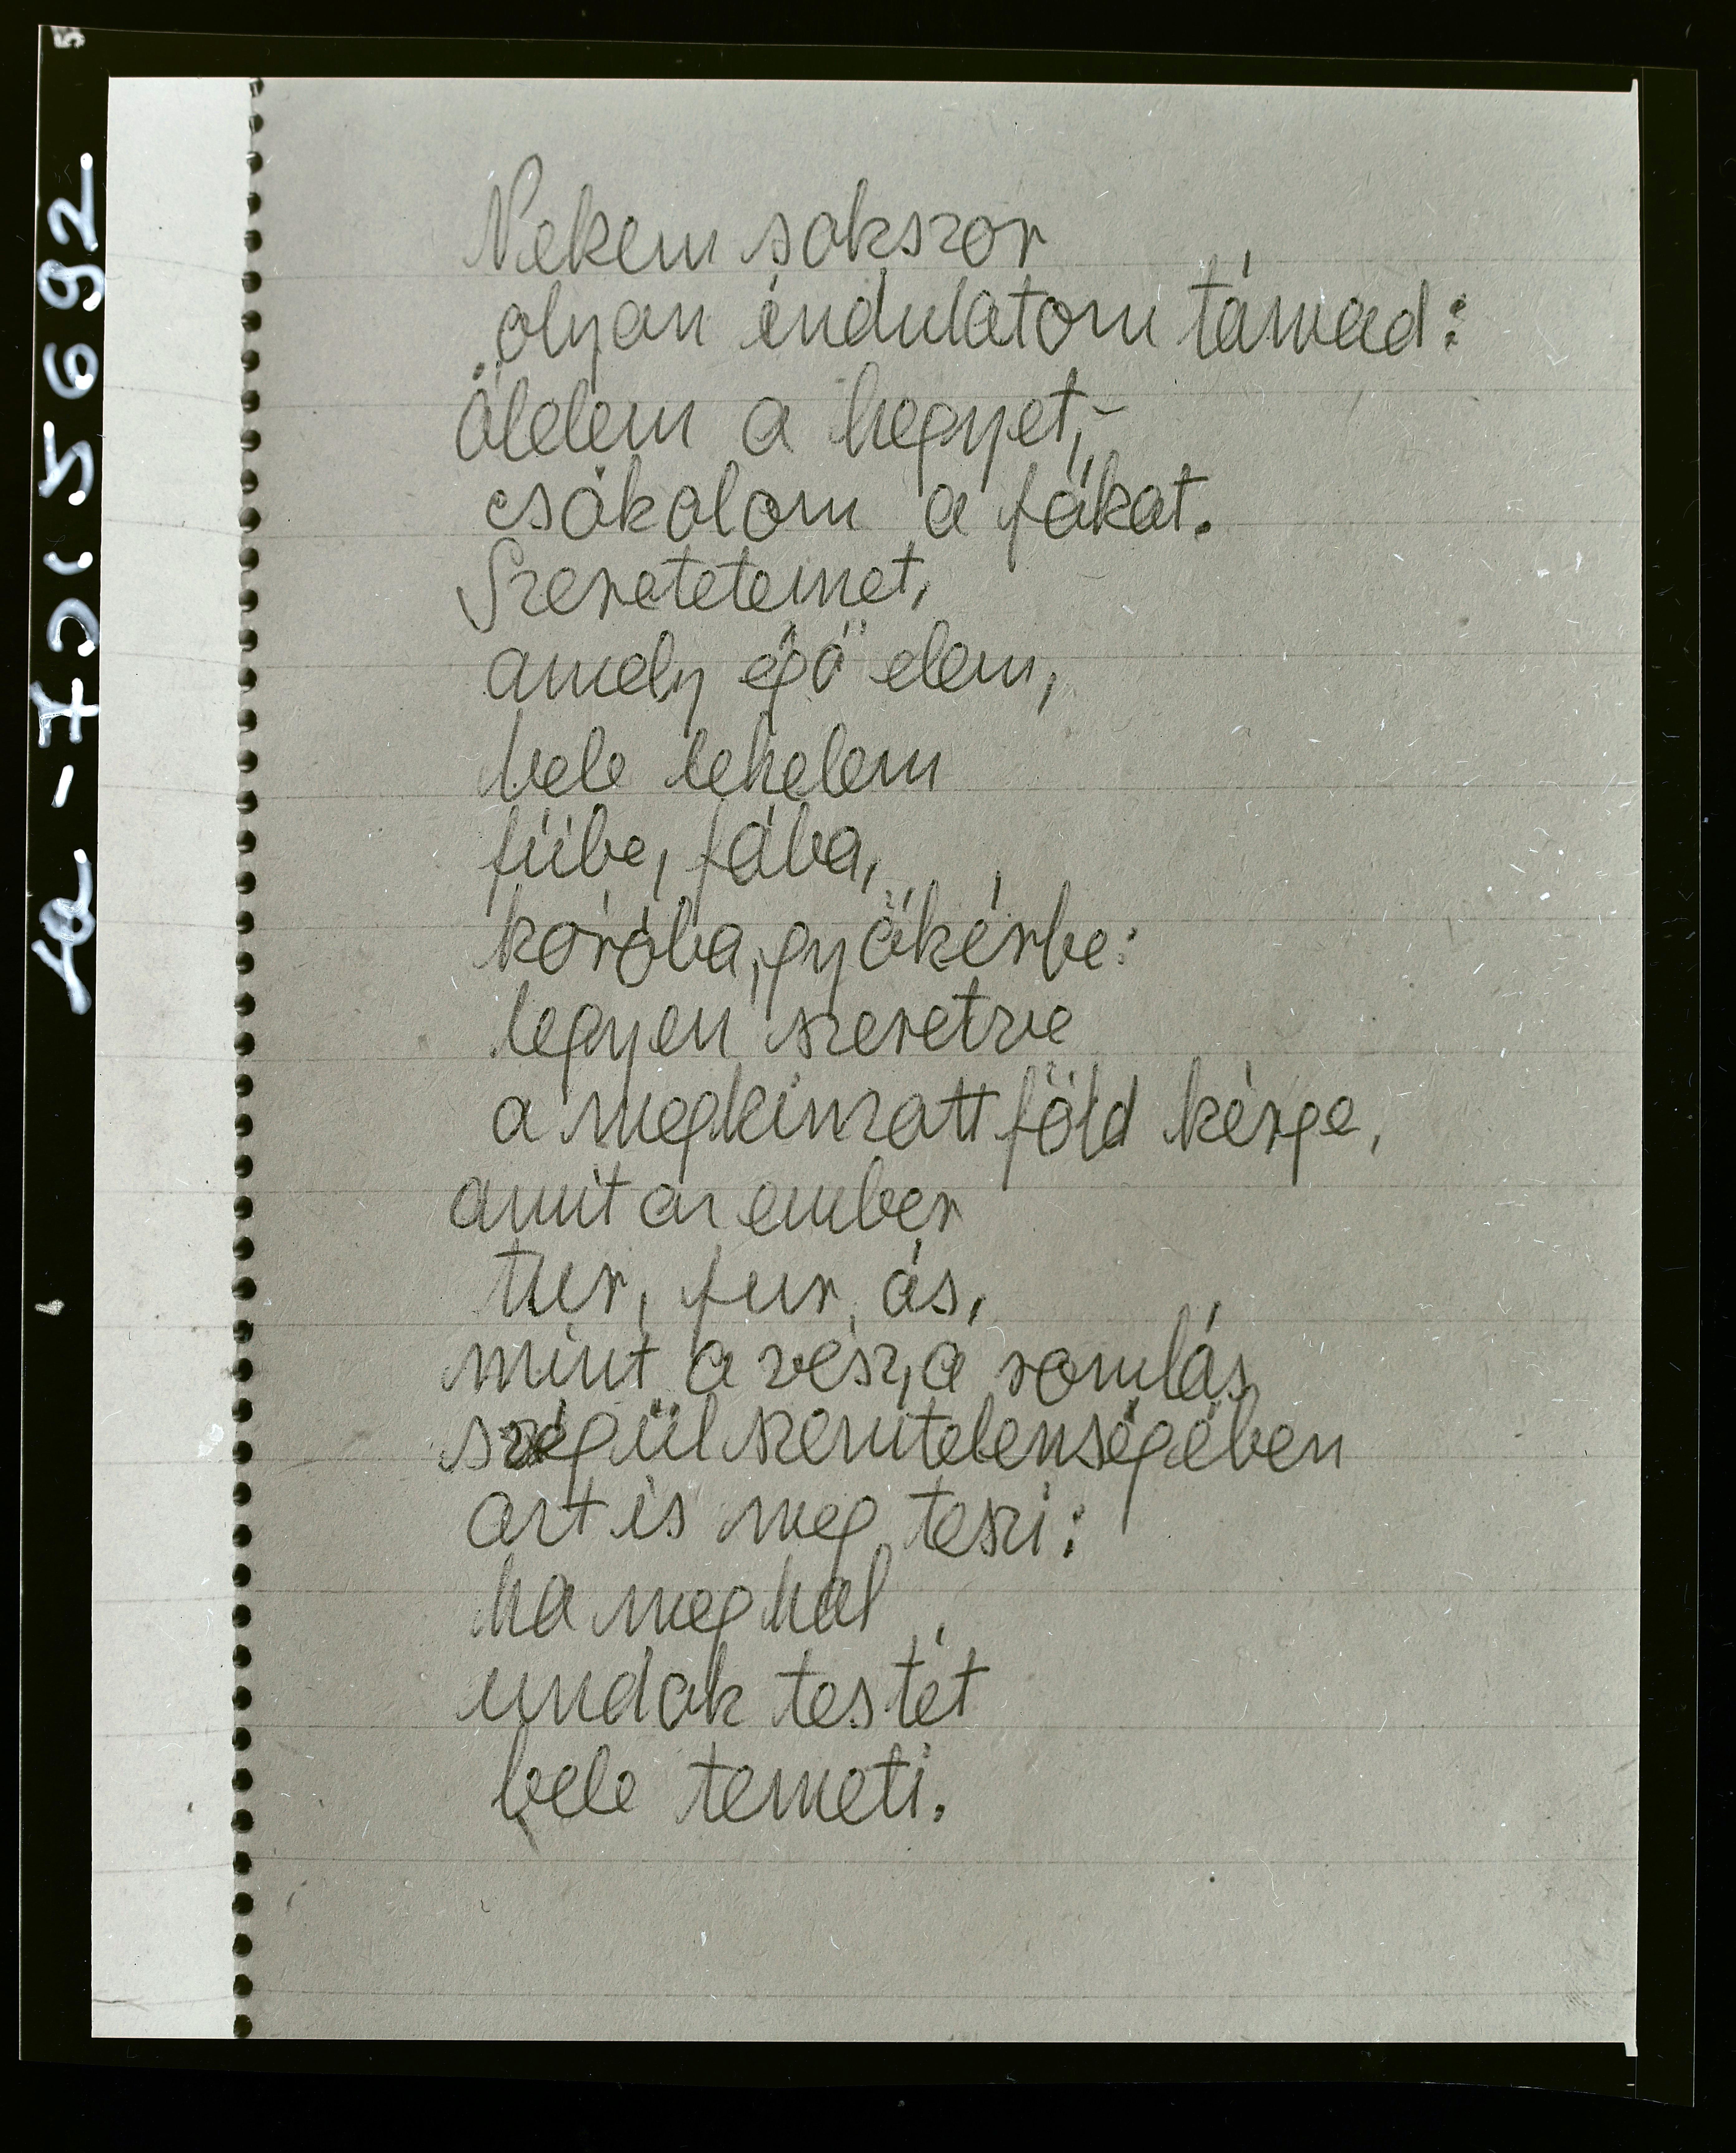 Nekem sokszor
olyan indulatom támad:
ölelem a hegyet,-
csókolom a fákat.
Szeretetemet,
amely égő elem,
bele lehelem
fűbe, fába,
kóróba, gyökérbe:
legyen szeretve
a megkinzott föld kérge,
amit az ember
tur, fur, ás,
mint a vész, a romlás,
s végül szemtelenségében
azt is meg teszi:
ha meghal
undok testét
bele temeti.